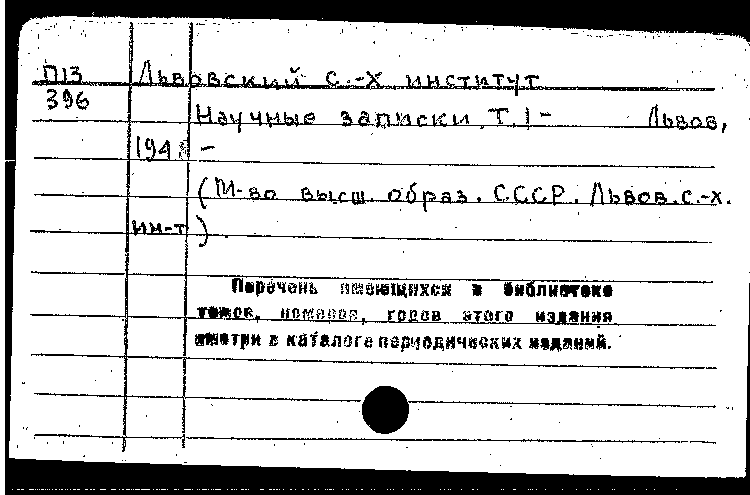 П13 Львовский с.-х. институт
396
Научные записки. Т. 1 - Львов,
194 -
(М-во высш. образ. СССР. Львов. с.-х.
ин-т)
Перечень имеющихся в библиотеке
томов, номеров, годов этого издания
смотри в каталоге периодических изданий.